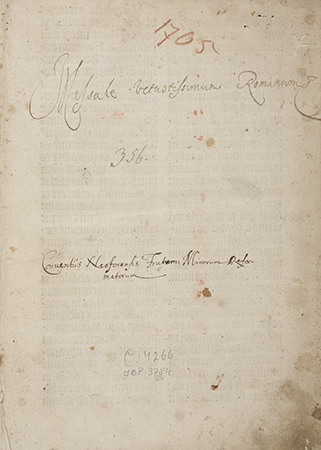 1705
Missale vetustissimum Romanum
356.
Conventus Neoforensis Fratrum Minorum Refor
matorum
C. 4266